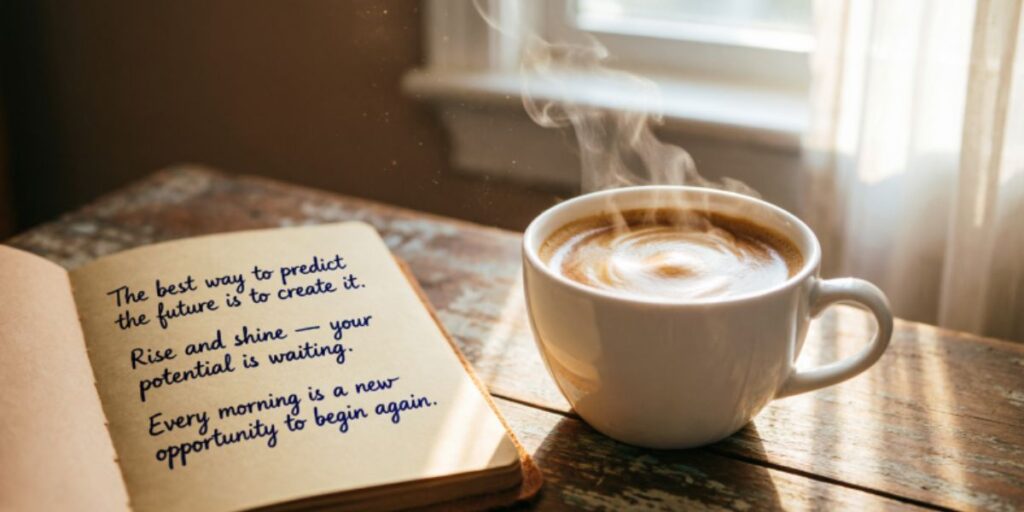 The best way to predict
the future is to create it.
Rise and shine — your
potential is waiting.
Every morning is a new
opportunity to begin again.